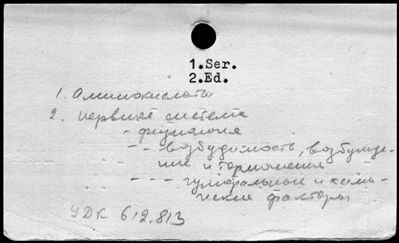 1.Ser.
2.Ed.
1. Аминокислоты
2. Нервная система
- физиология
- - возбудимость, возбужде-
ние и торможение
- - - гуморальные и хими-
ческие факторы
УДК 612.813